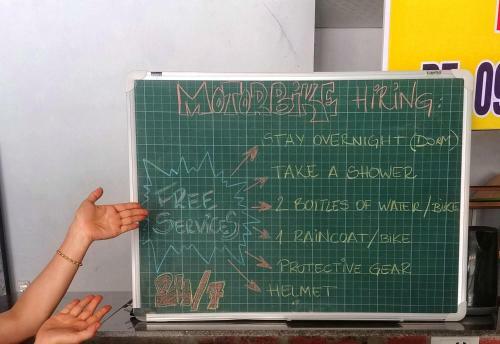 MOTORBIKE HIRING:
STAY OVERNIGHT (DORM)
TAKE A SHOWER
FREE SERVICES
2 BOTTLES OF WATER/BIKE
1 RAINCOAT/BIKE
PROTECTIVE GEAR
HELMET
24/7
09